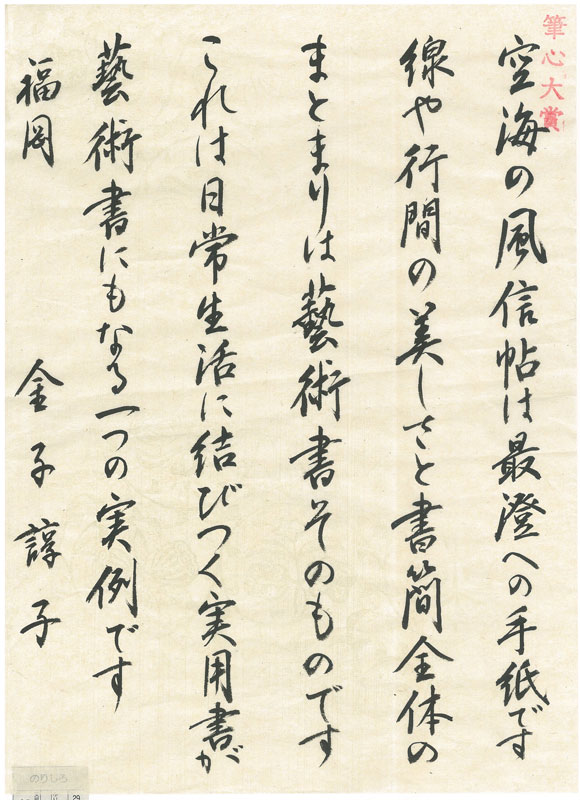 筆心大賞
空海の風信帖は最澄への手紙です
線や行間の美しさと書簡全体の
まとまりは藝術書そのものです
これは日常生活に結びつく実用書が
藝術書にもなる一つの実例です
福岡 金子諄子
のりしろ